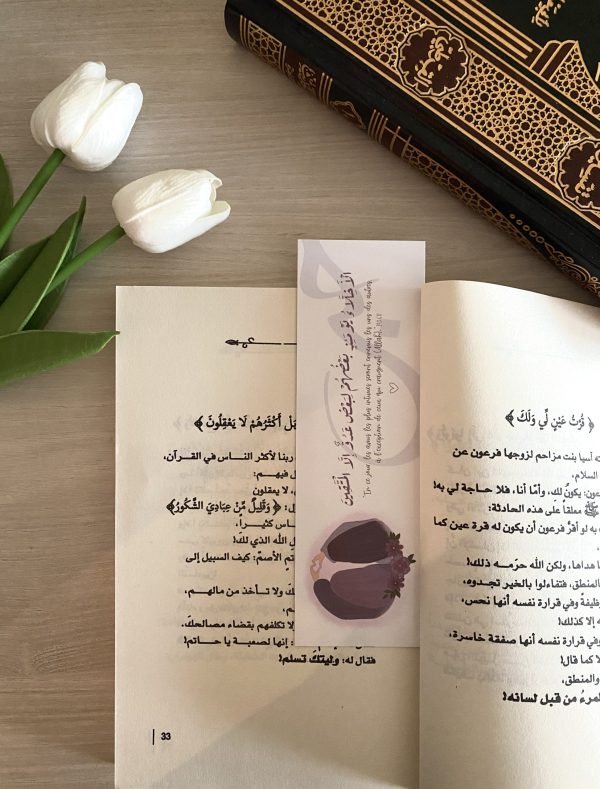 ﴿ قُرَّتُ عَيْنٍ لِّي وَلَكَ ﴾
ته آسيا بنت مزاحم لزوجها فرعون عن
السلام،
عون: يكونُ لكِ، وأمّا أنا، فلا حاجة لي به!
ﷺ معلقاً على هذه الحادثة:
به لو أقرَّ فرعون أن يكون له قرة عين كما
ما هداها، ولكن الله حرّمه ذلك!
بالمنطق، فتفاءلوا بالخير تجدوه،
وظيفةً وفي قرارة نفسه أنها نحس،
إلا كذلك!
وفي قرارة نفسه أنها صفقة خاسرة،
لا كما قال!
والمنطق،
لمرءُ من قبل لسانه!
الأَخِلَّاءُ يَوْمَئِذٍ بَعْضُهُمْ لِبَعْضٍ عَدُوٌّ إِلَّا الْمُتَّقِينَ
Ce jour, les amis les plus intimes seront ennemis les uns des autres,
à l'exception de ceux qui craignent (Allah).
بَلْ أَكْثَرُهُمْ لَا يَعْقِلُونَ ﴾
ربنا لأكثر الناس في القرآن،
فيهم:
لا يعقلون
﴿ وَقَلِيلٌ مِّنْ عِبَادِيَ الشَّكُورُ ﴾
اس كثيراً،
الله الذي لكَ!
تم الأصمّ: كيف السبيل إلى
كَ ولا تأخذ من مالهم،
م،
لا تكلفهم بقضاء مصالحكَ.
إنها لصعبة يا حاتم!
فقال له: وليتكَ تسلم!
33